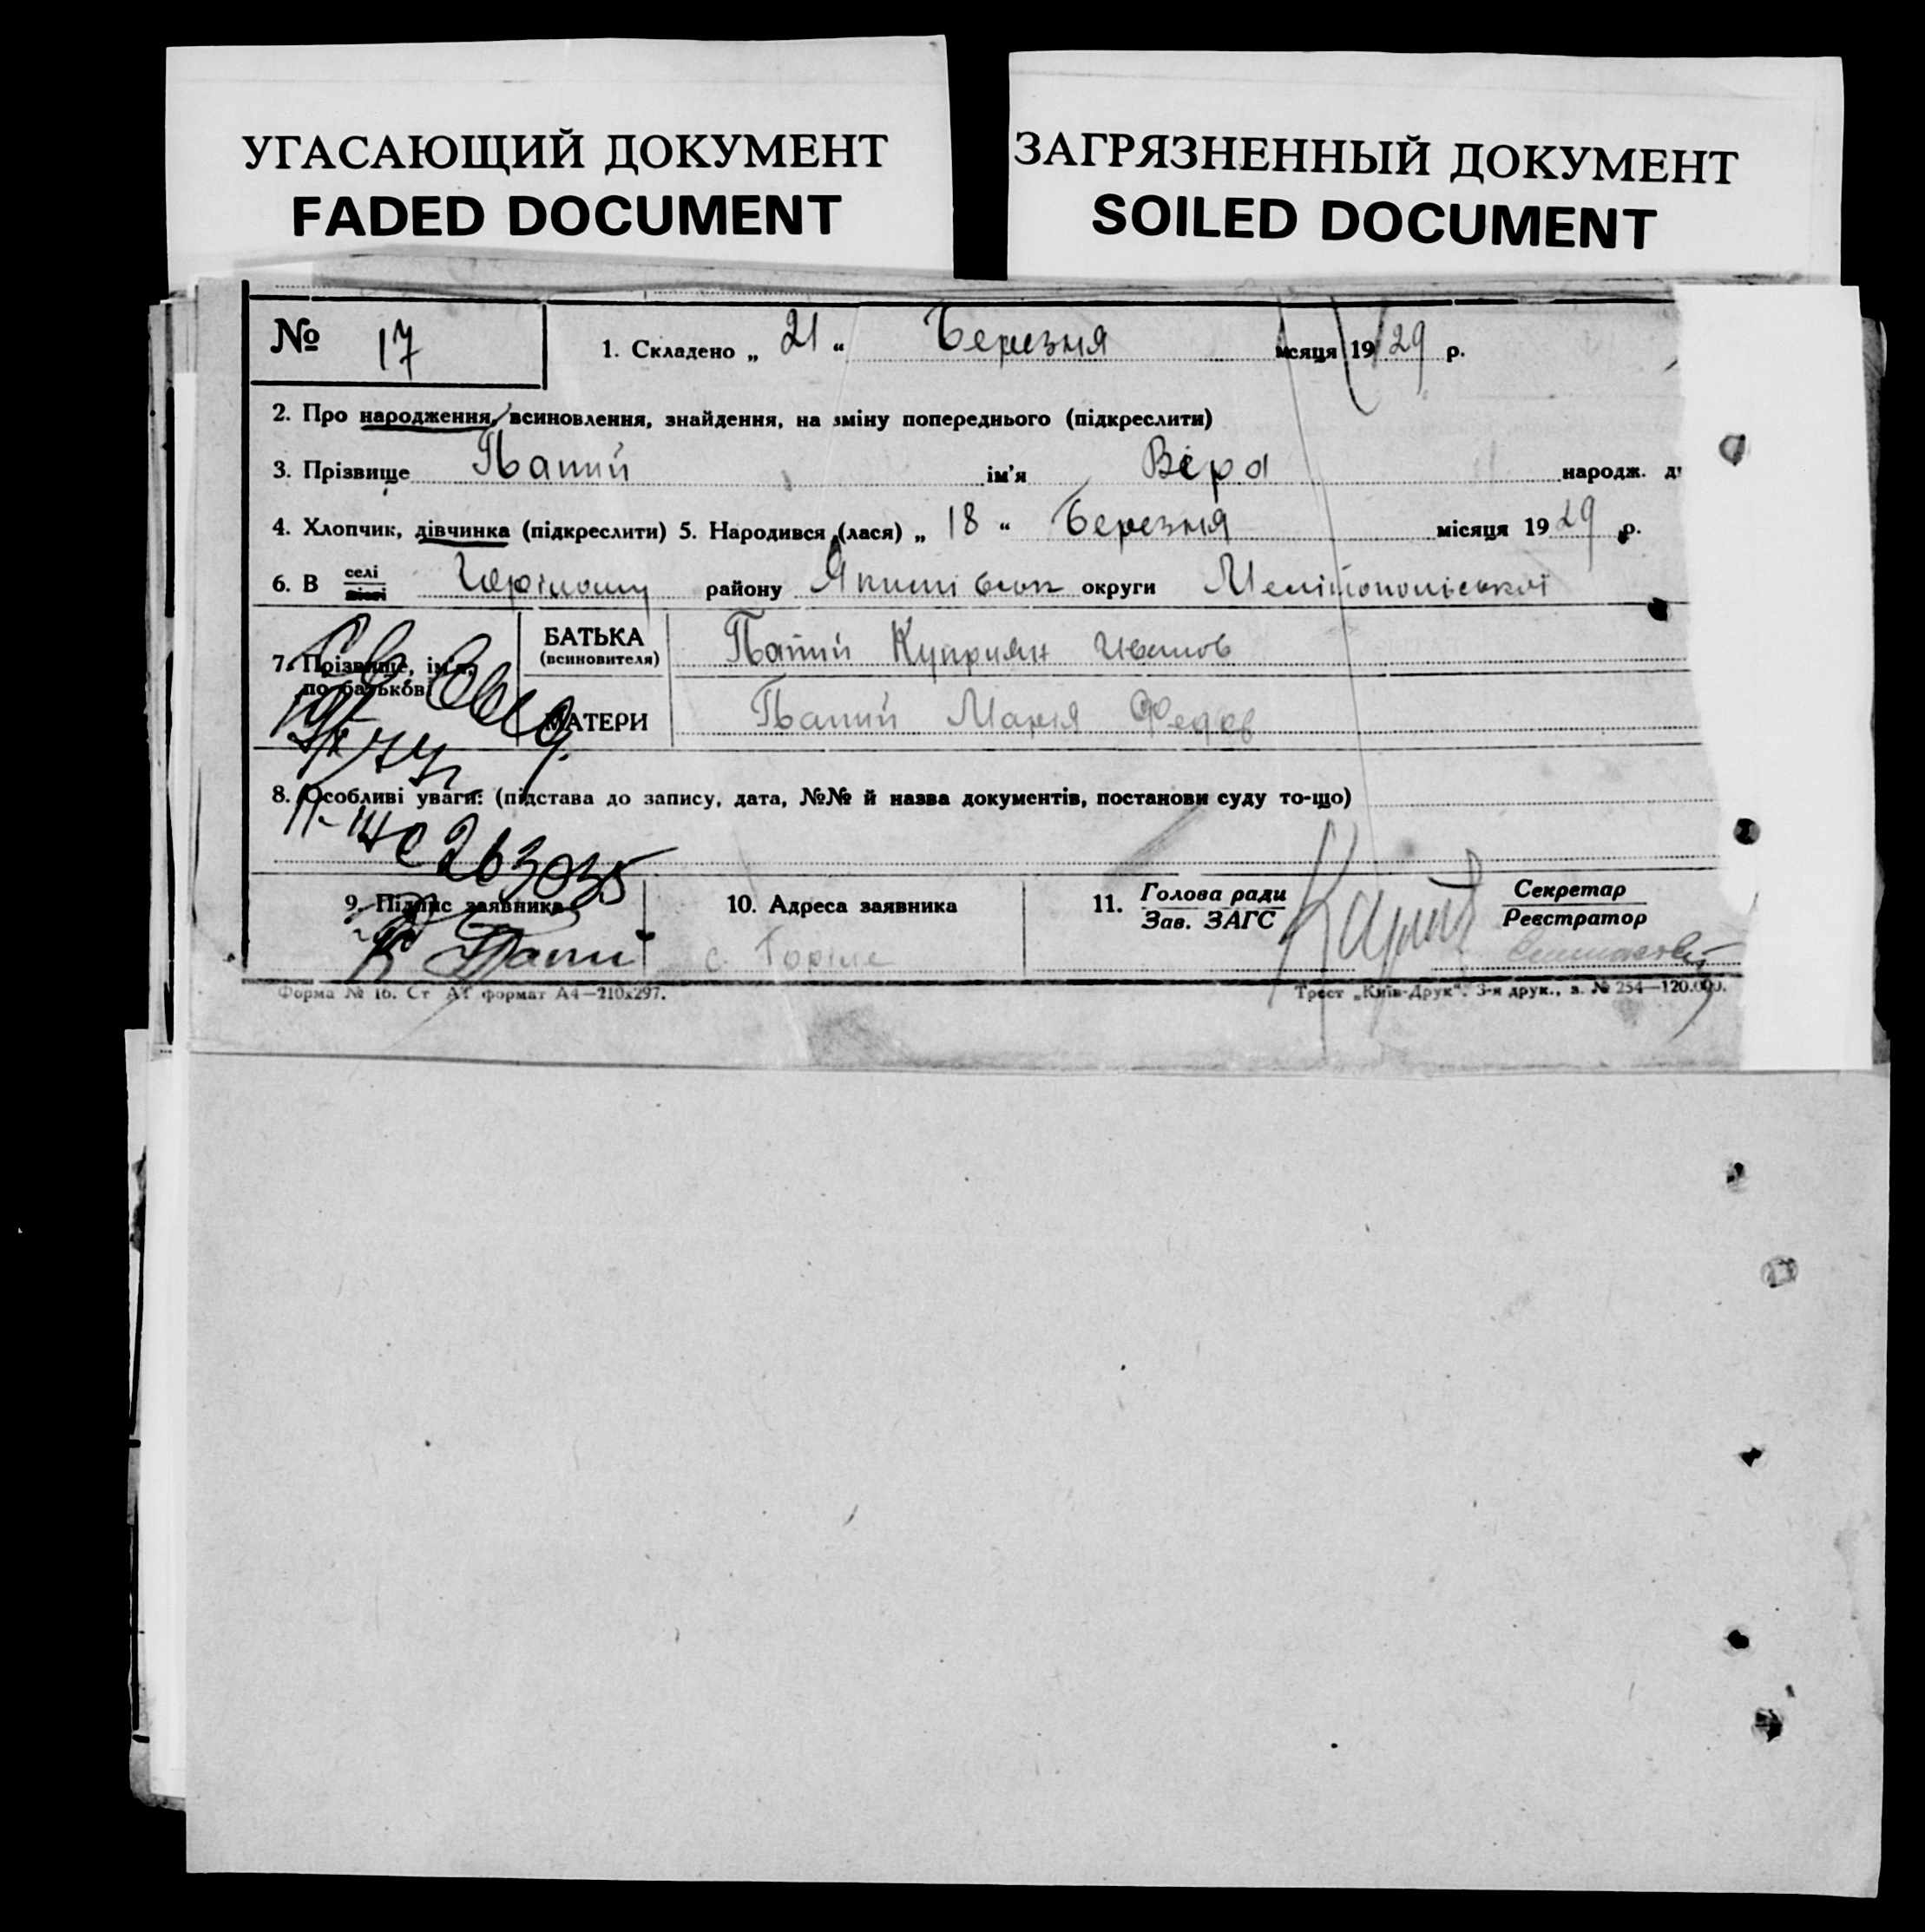 УГАСАЮЩИЙ ДОКУМЕНТ
FADED DOCUMENT
ЗАГРЯЗНЕННЫЙ ДОКУМЕНТ
SOILED DOCUMENT
№ 17
1. Складено „ 21 “ Березня місяця 1929 р.
2. Про народження, всиновлення, знайдення, на зміну попереднього (підкреслити)
3. Прізвище Папий ім'я Віра народж.
4. Хлопчик, дівчинка (підкреслити) 5. Народився (лася) „ 18 “ Березня місяця 1929 р.
6. В селі району округи Мелітопольської
7. Прізвище, ім'я, по батькові
БАТЬКА (всиновителя) Папий Куприян Иванов
МАТЕРИ Папий Мария Федов
8. Особливі уваги: (підстава до запису, дата, №№ й назва документів, постанови суду то-що)
263035
9. Підпис заявника
10. Адреса заявника
11. Голова ради
Зав. ЗАГС
Секретар
Реєстратор
с. Горіле
Форма № 16. Ст АТ формат А4—210x297.
Трест „Київ-Друк“. 3-я друк., з. № 254—120.000.